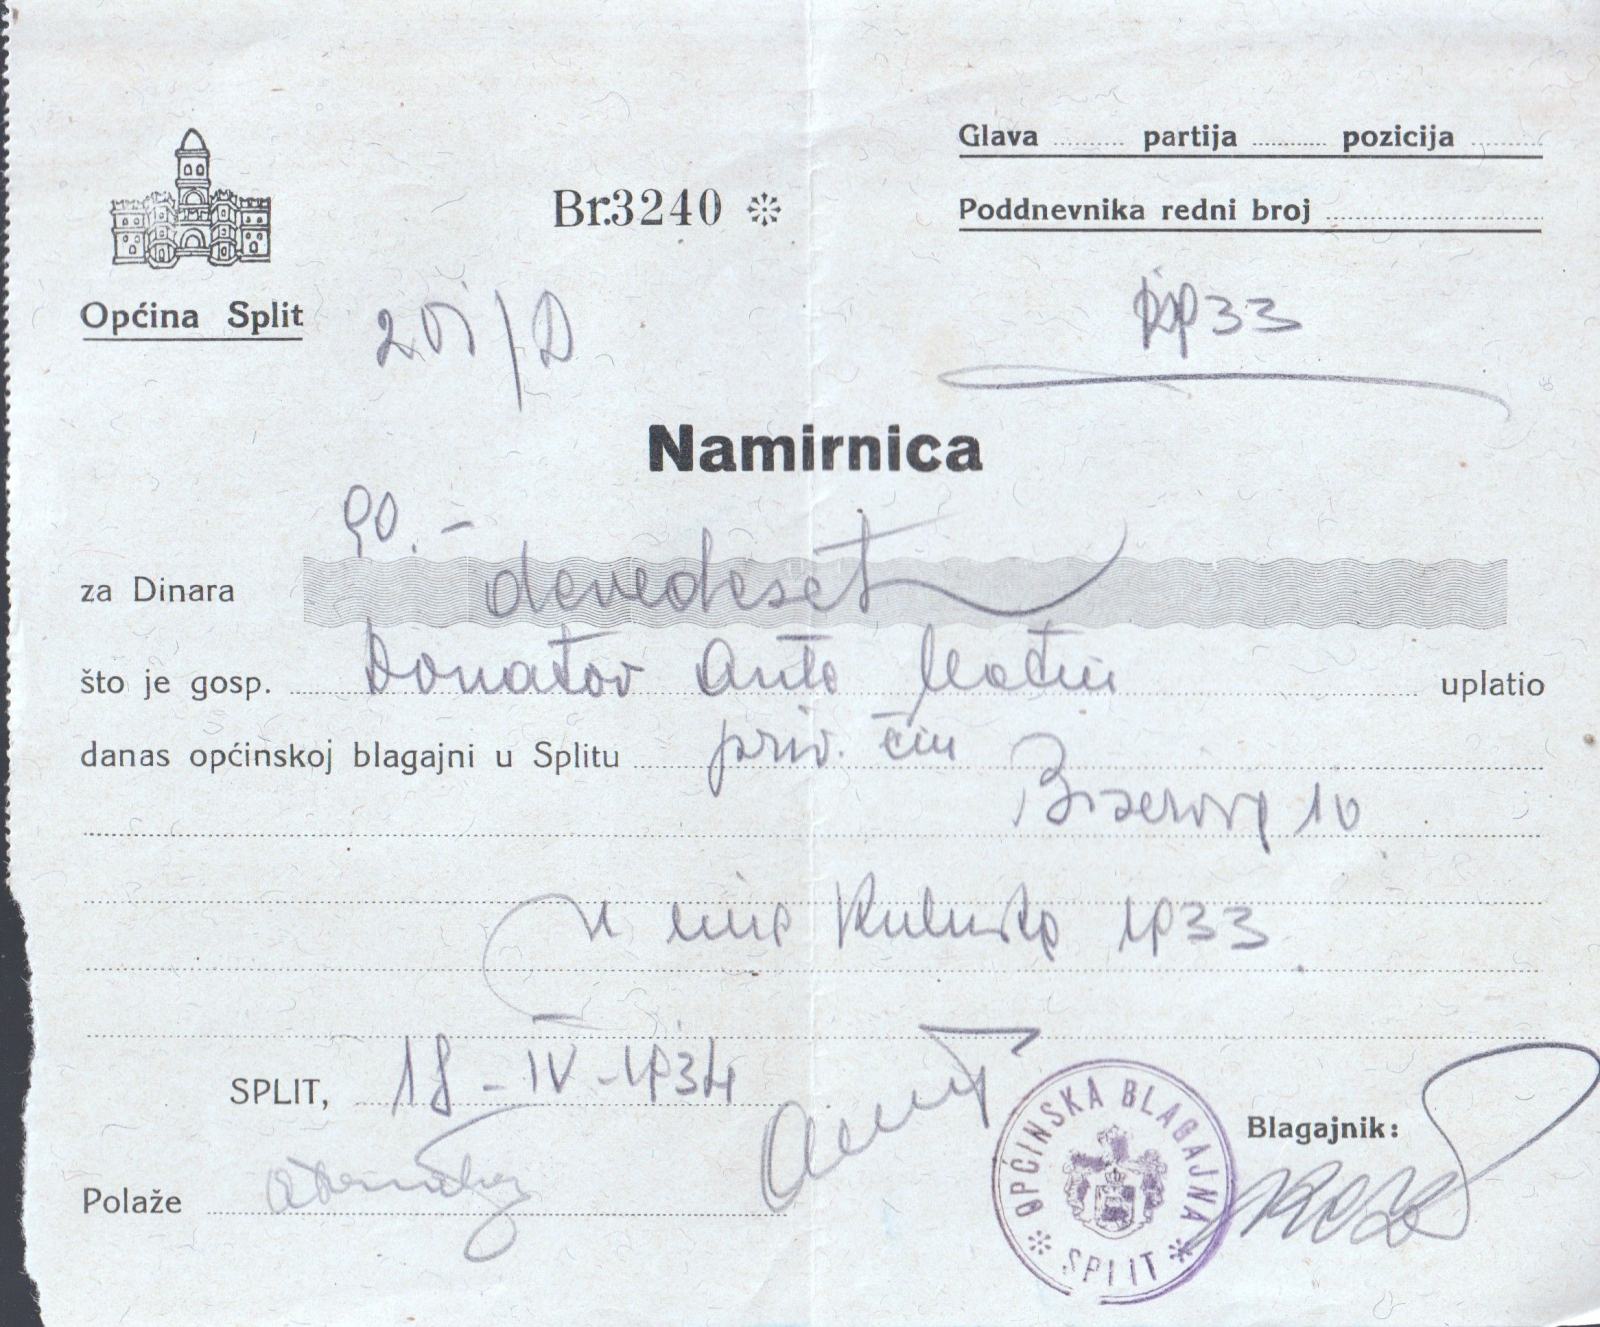 Glava ........ partija ........ pozicija ........
Br. 3240 *
Poddnevnika redni broj ........
Općina Split
33
Namirnica
90.-
za Dinara devedeset
što je gosp. Donatov Ante uplatio
danas općinskoj blagajni u Splitu priv. čin
10
u ime 1933
SPLIT, 18-IV-1934
OPĆINSKA BLAGAJNA
* SPLIT *
Blagajnik:
Polaže